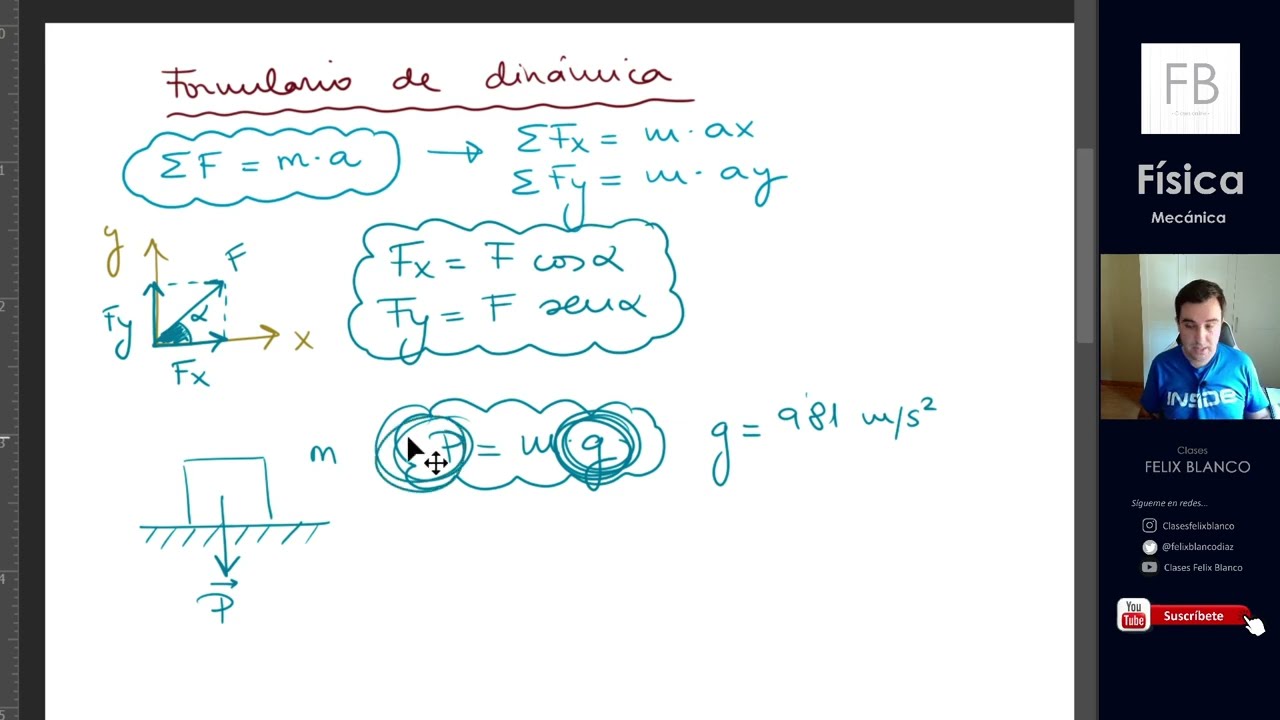 Formulario de dinámica
ΣF = m·a → ΣFx = m·ax
ΣFy = m·ay
y
F
Fy
α
x
Fx
Fx = F cosα
Fy = F senα
m
P = m·g
g = 9'81 m/s²
P
FB
Física
Mecánica
INSIDE
Clases
FELIX BLANCO
Sígueme en redes...
Clasesfelixblanco
@felixblancodiaz
Clases Felix Blanco
You
Tube
Suscríbete